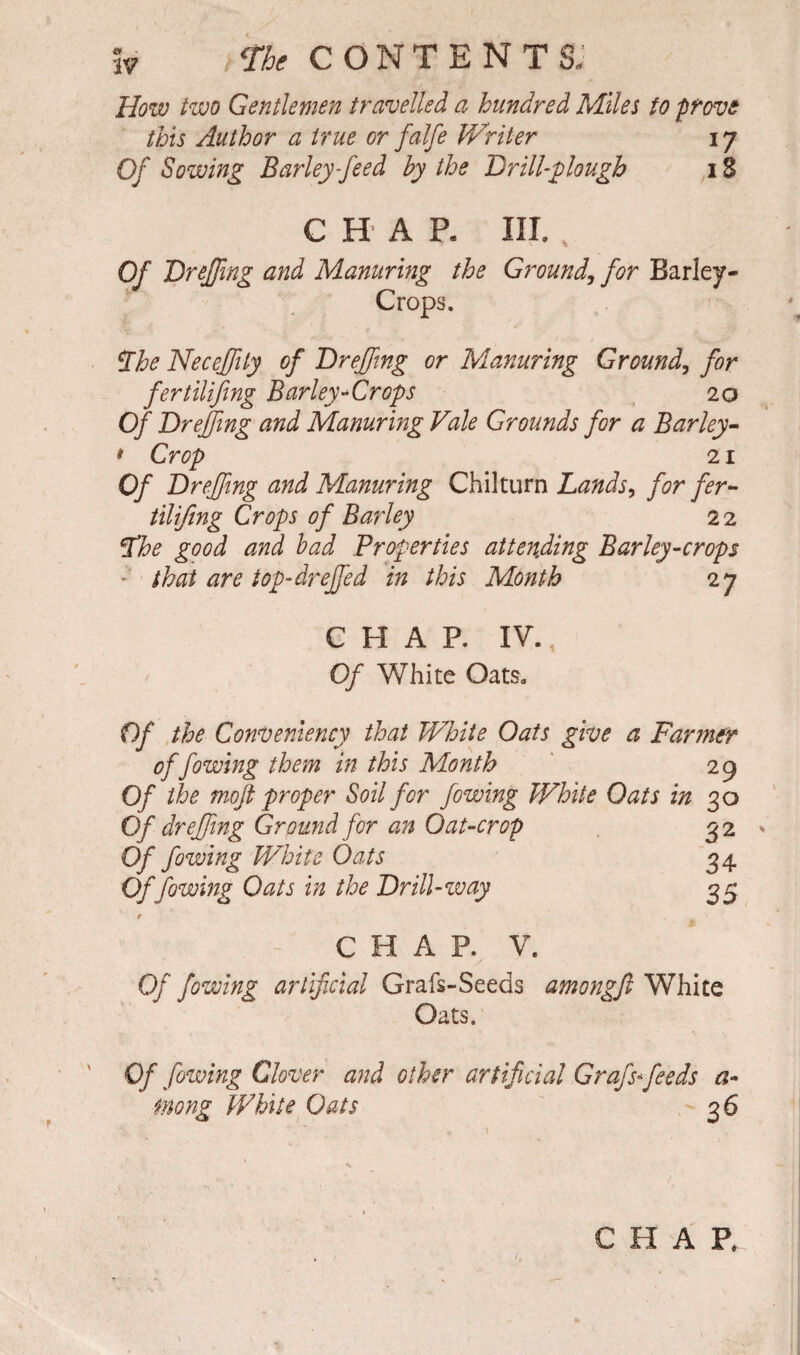 iv The CONTENTS.
How two Gentlemen travelled a hundred Miles to prove
this Author a true or falſe Writer 17
Of Sowing Barley-ſeed by the Drill-plough 18
CHAP. III.
Of Dreſſing and Manuring the Ground, for Barley-
Crops.
The Neceſſity of Dreſſing or Manuring Ground, for
fertiliſing Barley-Crops 20
Of Dreſſing and Manuring Vale Grounds for a Barley-
Crop 21
Of Dreſſing and Manuring Chilturn Lands, for fer-
tiliſing Crops of Barley 22
The good and bad Properties attending Barley-crops
that are top-dreſſed in this Month 27
CHAP. IV.
Of White Oats.
Of the Conveniency that White Oats give a Farmer
of ſowing them in this Month 29
Of the moſt proper Soil for ſowing White Oats in 30
Of dreſſing Ground for an Oat-crop 32
Of ſowing White Oats 34
Of ſowing Oats in the Drill-way 35
CHAP. V.
Of ſowing artificial Graſs-Seeds amongſt White
Oats.
Of ſowing Clover and other artificial Graſs-ſeeds a-
mong White Oats 36
CHAP.